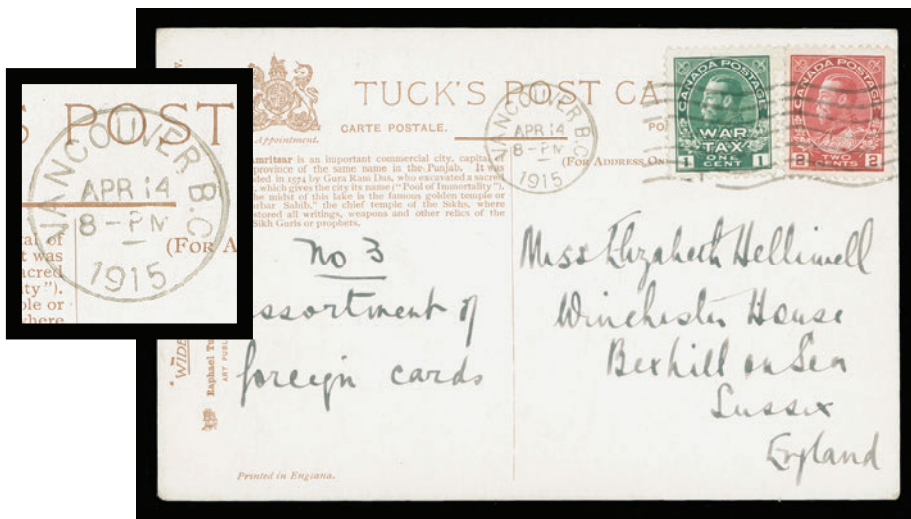 S POST
VANCOUVER, B.C.
APR 14
8-PM
1915
(FOR A
tal of
t was
acred
ity").
ple or
where
Appointment.
TUCK'S POST CA
CARTE POSTALE.
PO
(FOR ADDRESS ON
VANCOUVER, B.C.
APR 14
8-PM
1915
CANADA POSTAGE
WAR
TAX
ONE
CENT
1 1
CANADA POSTAGE
TWO
CENTS
2 2
mritsar is an important commercial city, capital of
province of the same name in the Punjab. It was
ded in 1574 by Gura Ram Das, who excavated a sacred
, which gives the city its name ("Pool of Immortality").
he midst of this lake is the famous golden temple or
rbar Sahib," the chief temple of the Sikhs, where
stored all writings, weapons and other relics of the
Sikh Guris or prophets.
No 3
assortment of
foreign cards
Miss Elizabeth Helliwell
Winchester House
Bexhill on Sea
Sussex
England
"WIDE
Raphael Tu
ART PUBL
Printed in England.